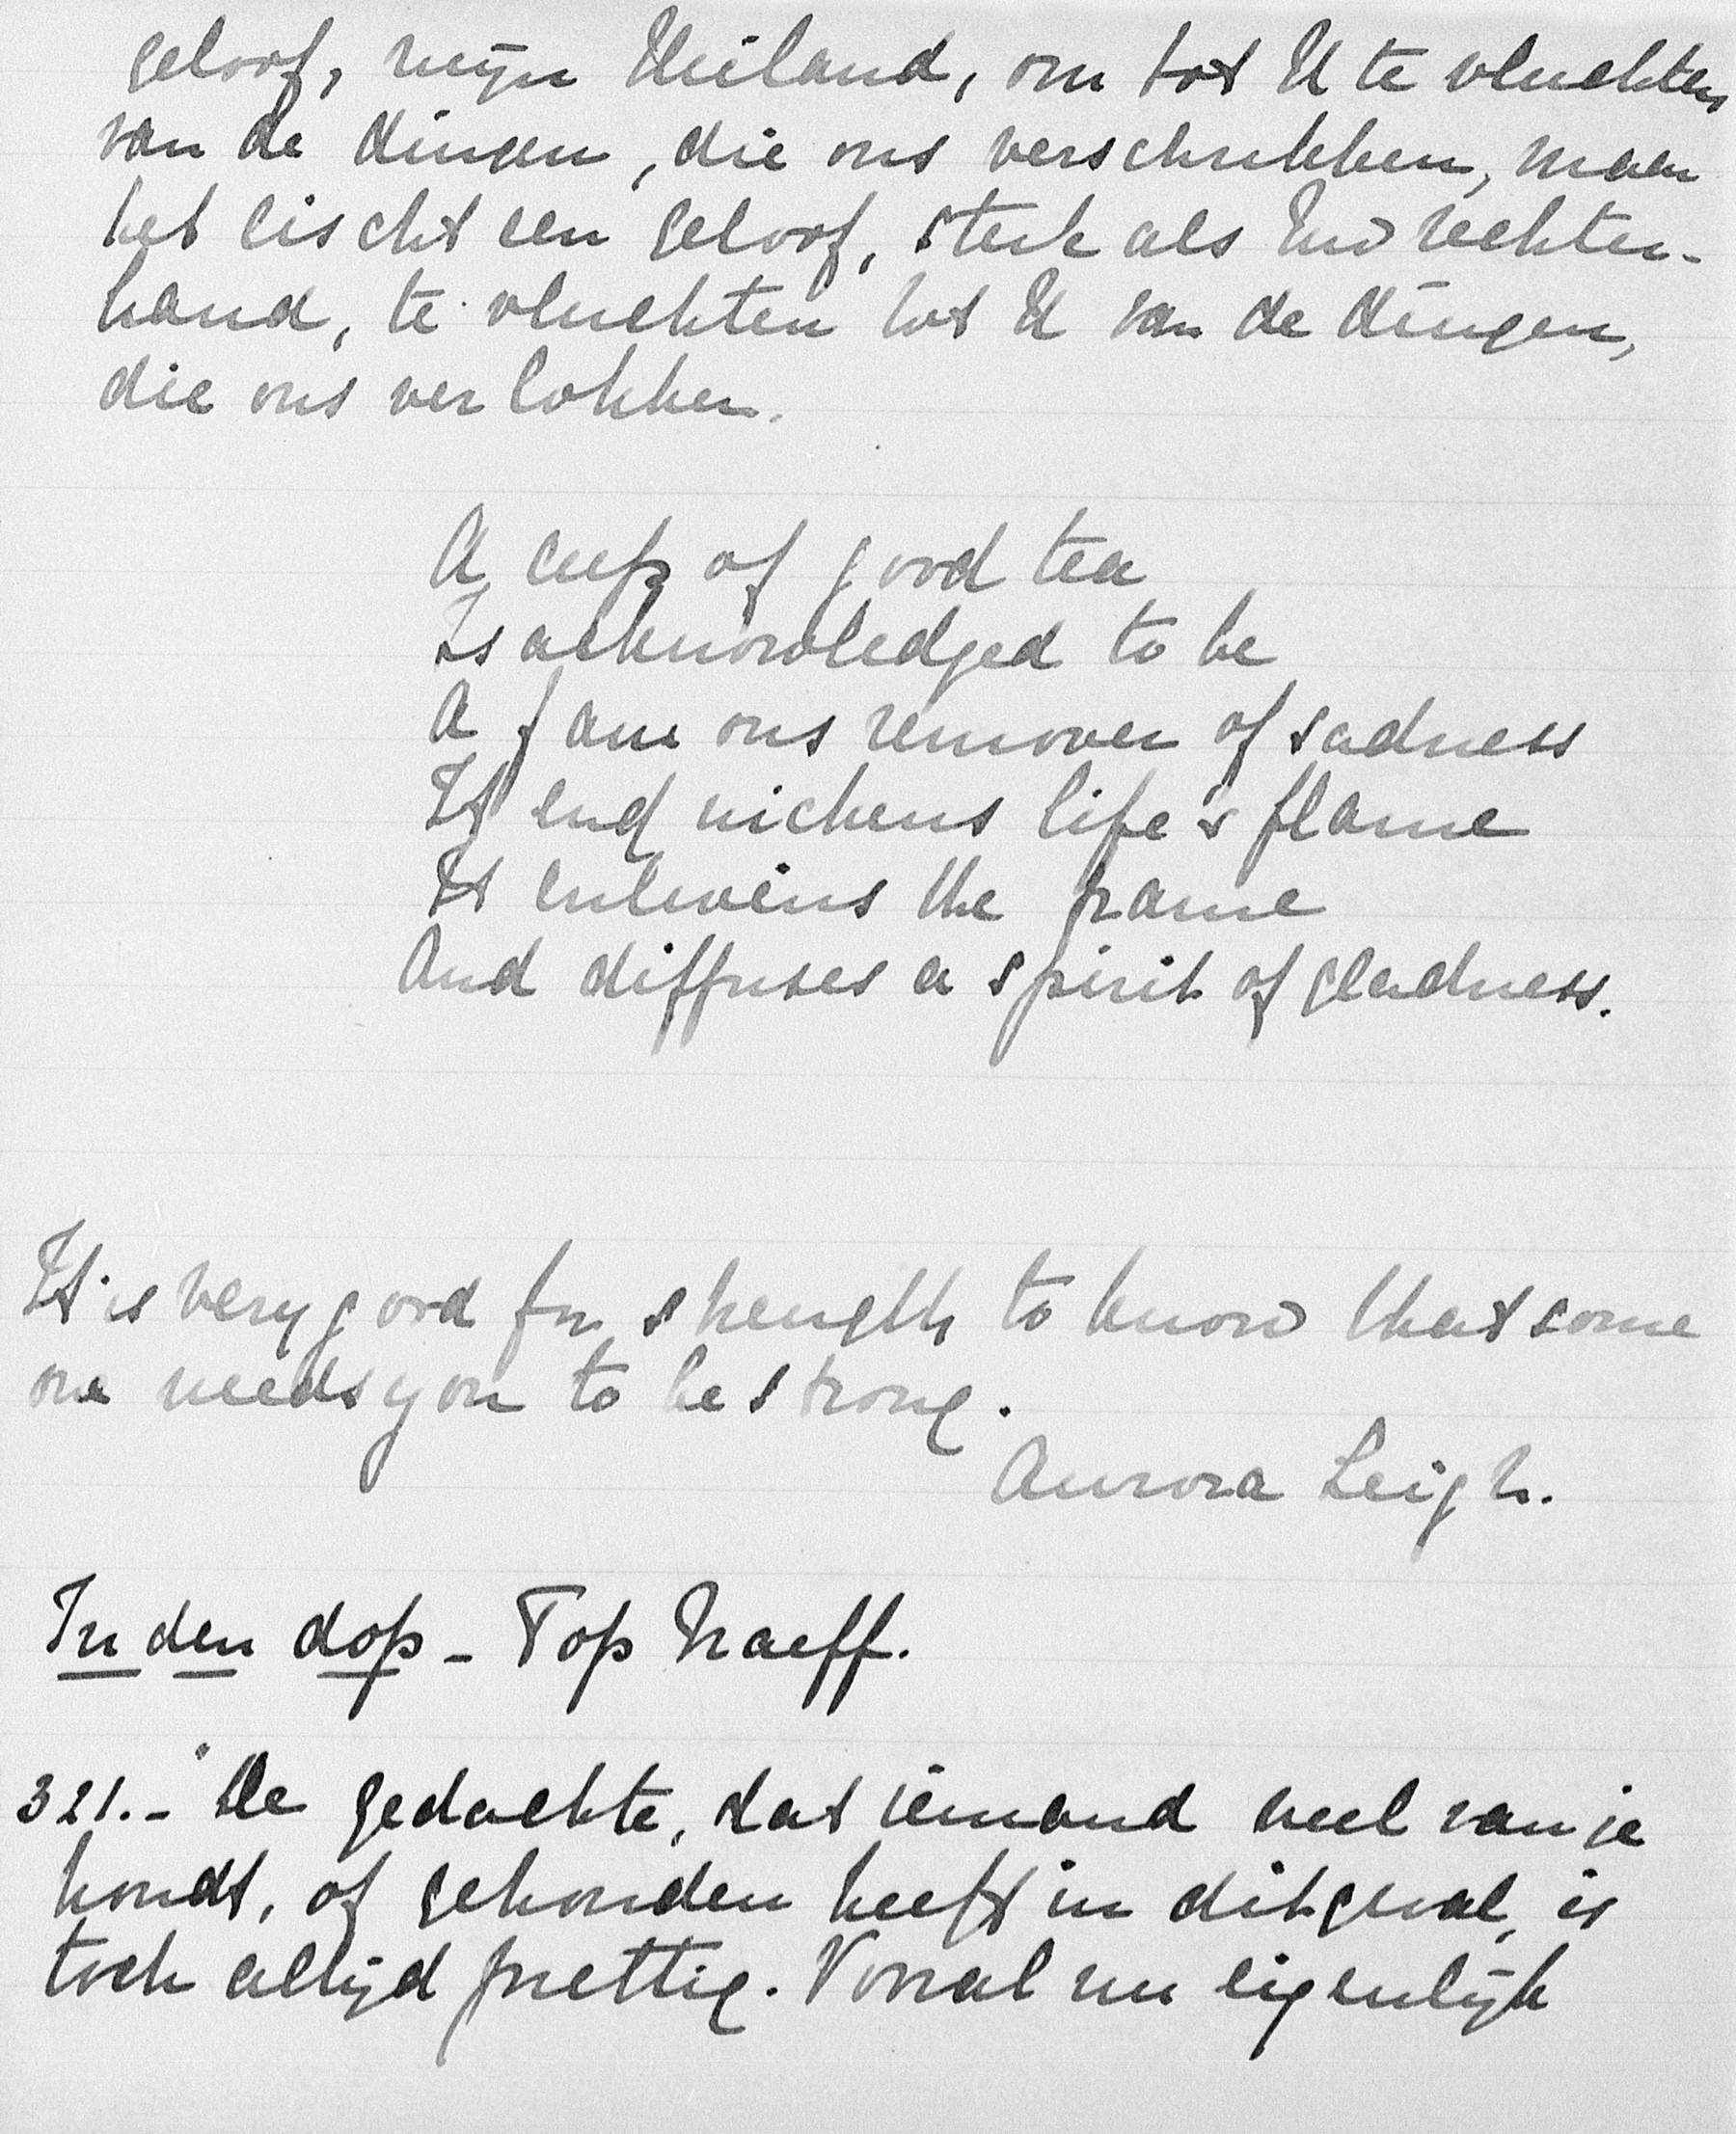 geloof, mijn Heiland, om tot U te vluchten
van de dingen, die ons verschrikken, maar
het eischt een geloof, sterk als Uw rechter-
hand, te vluchten tot U van de dingen,
die ons verlokken.
A cup of good tea
Is acknowledged to be
A famous remover of sadness
It enquickens life's flame
It enlivens the frame
And diffuses a spirit of gladness.
It is very good for strength to know that some
one needs you to be strong.
Aurora Leigh.
In den dop - Top Naeff.
321.- "De gedachte, dat iemand veel van je
houdt, of gehouden heeft in dit geval, is
toch altijd prettig. Vooral nu eigenlijk